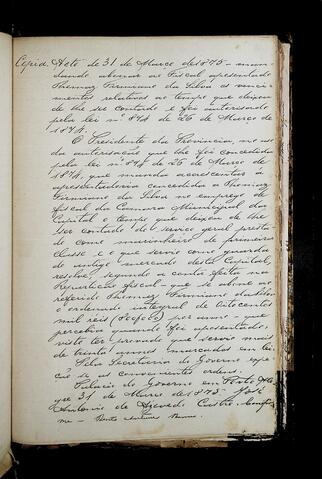 Copia. Acto de 31 de Março de 1875 - man-
dando abonar ao Fiscal apresentado
Thomaz Firmiano da Silva os venci-
mentos relativos ao tempo que deixou
de lhe ser contado e foi autorisado
pela lei nº 874 de 26 de Março de
1874.
O Presidente da Provincia, no uso
da autorisação que lhe foi concedida
pela lei nº 874 de 26 de Março de
1874, que manda accrescentar á
aposentadoria concedida a Thomaz
Firmiano da Silva no emprego de
fiscal da Camara Municipal da
Capital o tempo que deixou de lhe
ser contado do serviço geral presta-
do como marinheiro de primeira
classe e o que servio como guarda
do antigo mercado desta Capital,
resolve, segundo a conta feita na
Repartição fiscal - que se abone ao
referido Thomaz Firmiano da Silva
o ordenado integral de oitocentos
mil reis (800$000) por anno - que
percebia quando foi aposentado,
visto ter provado que servio mais
de trinta annos marcados em lei.
Pela Secretaria do Governo expe-
ção-se as convenientes ordens.
Palacio do Governo em Porto Ale-
gre 31 de Março de 1875. José
Antonio de Azevedo Castro. Confor-
me -